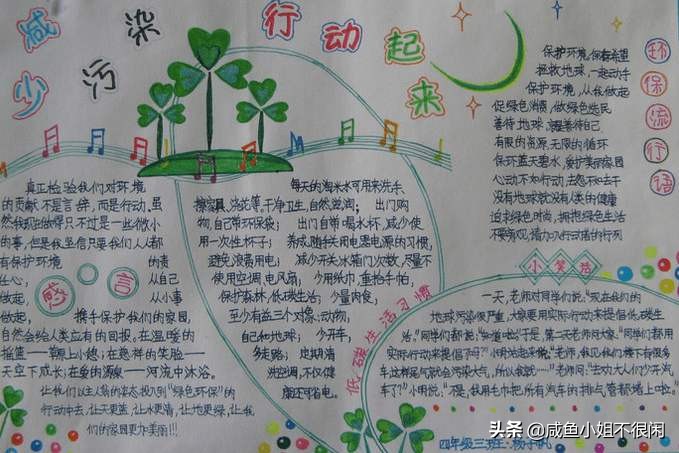 减少污染
行动起来
环保流行语
保护环境,保存希望
拯救地球,一起动手
保护环境,从我做起
促绿色消费,做绿色选民
善待地球,就是善待自己
有限的资源,无限的循环
保环蓝天碧水,爱护美丽家园
心动不如行动
没有地球就没有人类的健康
迎来绿色时尚,拥抱绿色生活
感言
真正检验我们对环境
的贡献不是言辞,而是行动,虽
然我现在做得只不过是一些微小
的事,但是我坚信只要我们人人都
有保护环境的责
心,从自己
做起,从小事
做起,携手保护我们的家园,
自然会给人类应有的回报。在温暖的
摇篮——草原上小憩;在慈祥的笑脸——
天空下成长;在爱的源泉——河流中沐浴。
让我们以主人翁的姿态,投入到“绿色环保”的
行动中去,让天更蓝,让水更清,让地更绿,让我
们的家园更加美丽!!!
低碳生活习惯
每天的淘米水可用来洗手、
擦家具、浇花等。干净卫生,自然滋润;出门购
物,自己带环保袋;出门自带喝水杯,减少使
用一次性杯子;养成随手关用电器电源的习惯,
避免浪费用电;减少开关冰箱门次数,尽量不
使用空调、电风扇;少用纸巾,重拾手帕,
保护森林,低碳生活;少量肉食,
至少有益三个对象:动物,
自己和地球;少开车,
多走路;定期清
洗空调,不仅健
康还可省电。
小笑话
一天,老师对同学们说:“现在我们的
地球污染很严重,大家要用实际行动来提倡低碳生
活。”同学们都说:“知道啦!”于是,第二天老师问大家:“同学们都用
实际行动来提倡了吗?”小明站起来说:“老师,我见我们楼下有很多
车,这样尾气就会污染大气,所以我就……”老师问:“主动大人们少开汽
车了?”小明说:“不是,我用毛巾把所有汽车的排气管都堵上啦。”
四年级三班:
头条 @咸鱼小姐不很闲